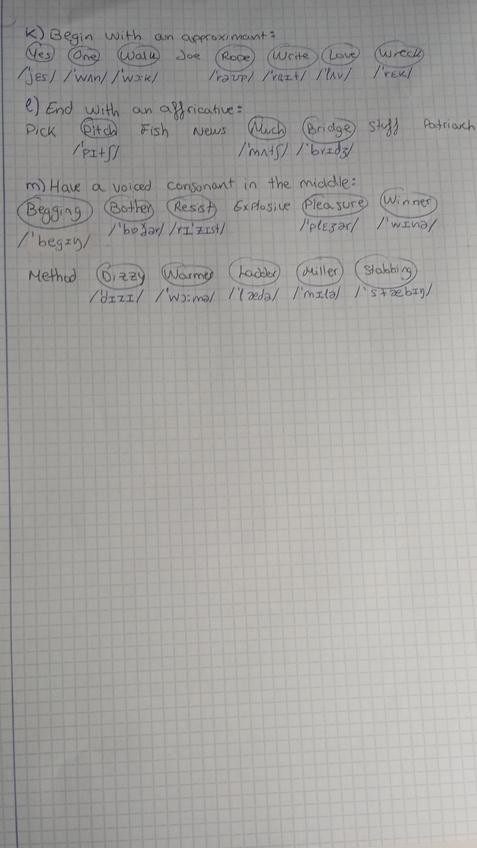 k) Begin with an approximant:
Yes One Walk Joe Rope Write Love Wreck
/'jES/ /'wʌn/ /'wɔk/ /'rəʊp/ /'raIt/ /'lʌv/ /'rɛk/
l) End with an affricative:
Pick Pitch Fish News Much Bridge Stuff Patriarch
/'pItʃ/ /'mʌtʃ/ /'brIdʒ/
m) Have a voiced consonant in the middle:
Begging Bother Resist Explosive Pleasure Winner
/'begIŋ/ /'boðər/ /rI'zIst/ /'plɛʒər/ /'wInə/
Method Dizzy Warmer Ladder Miller Stabbing
/'dIzI/ /'wɔ:mə/ /'lædə/ /'mIlə/ /'stæbIŋ/